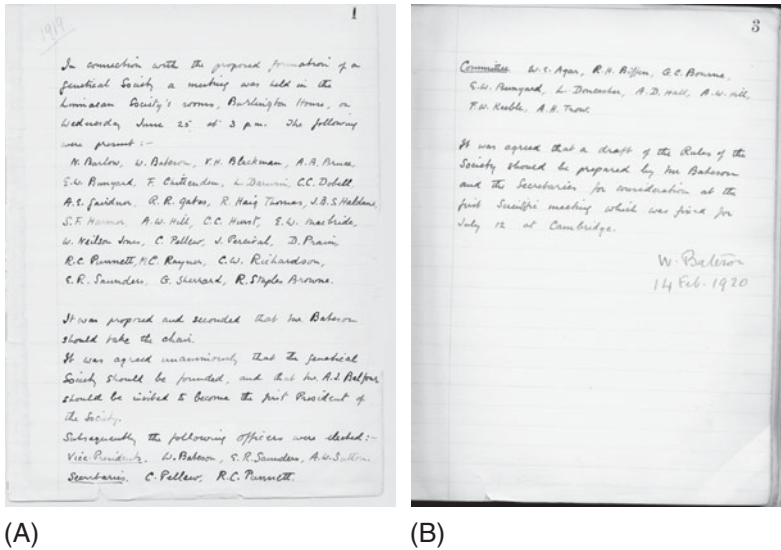 1919
1
In connection with the proposed formation of a
Genetical Society a meeting was held in the
Linnaean Society's rooms, Burlington House, on
Wednesday June 25 at 3 p.m. The following
were present :-
N. Barlow, W. Bateson, V.H. Blackman, A.B. Bruce,
E.W. Bunyard, F. Chittenden, L. Darwin, C.C. Dobell,
A.E. Gairdner, R.R. Gates, R. Haig Thomas, J.B.S. Haldane,
S.F. Harmer, A.W. Hill, C.C. Hurst, E.W. MacBride,
W. Neilson Jones, C. Pellew, J. Percival, D. Prain,
R.C. Punnett, M.C. Rayner, C.W. Richardson,
E.R. Saunders, G. Sherrard, R. Staples Browne.
It was proposed and seconded that Mr Bateson
should take the chair.
It was agreed unanimously that the Genetical
Society should be founded, and that Mr. A.J. Balfour
should be invited to become the first President of
the Society.
Subsequently the following officers were elected :-
Vice Presidents. W. Bateson, E.R. Saunders, A.W. Sutton.
Secretaries. C. Pellew, R.C. Punnett.
(A)
3
Committee. W.E. Agar, R.H. Biffen, G.C. Bourne,
E.W. Bunyard, L. Doncaster, A.D. Hall, A.W. Hill,
F.W. Keeble, A.H. Trow.
It was agreed that a draft of the Rules of the
Society should be prepared by Mr Bateson
and the Secretaries for consideration at the
first Scientific meeting which was fixed for
July 12 at Cambridge.
W. Bateson
14 Feb. 1920
(B)